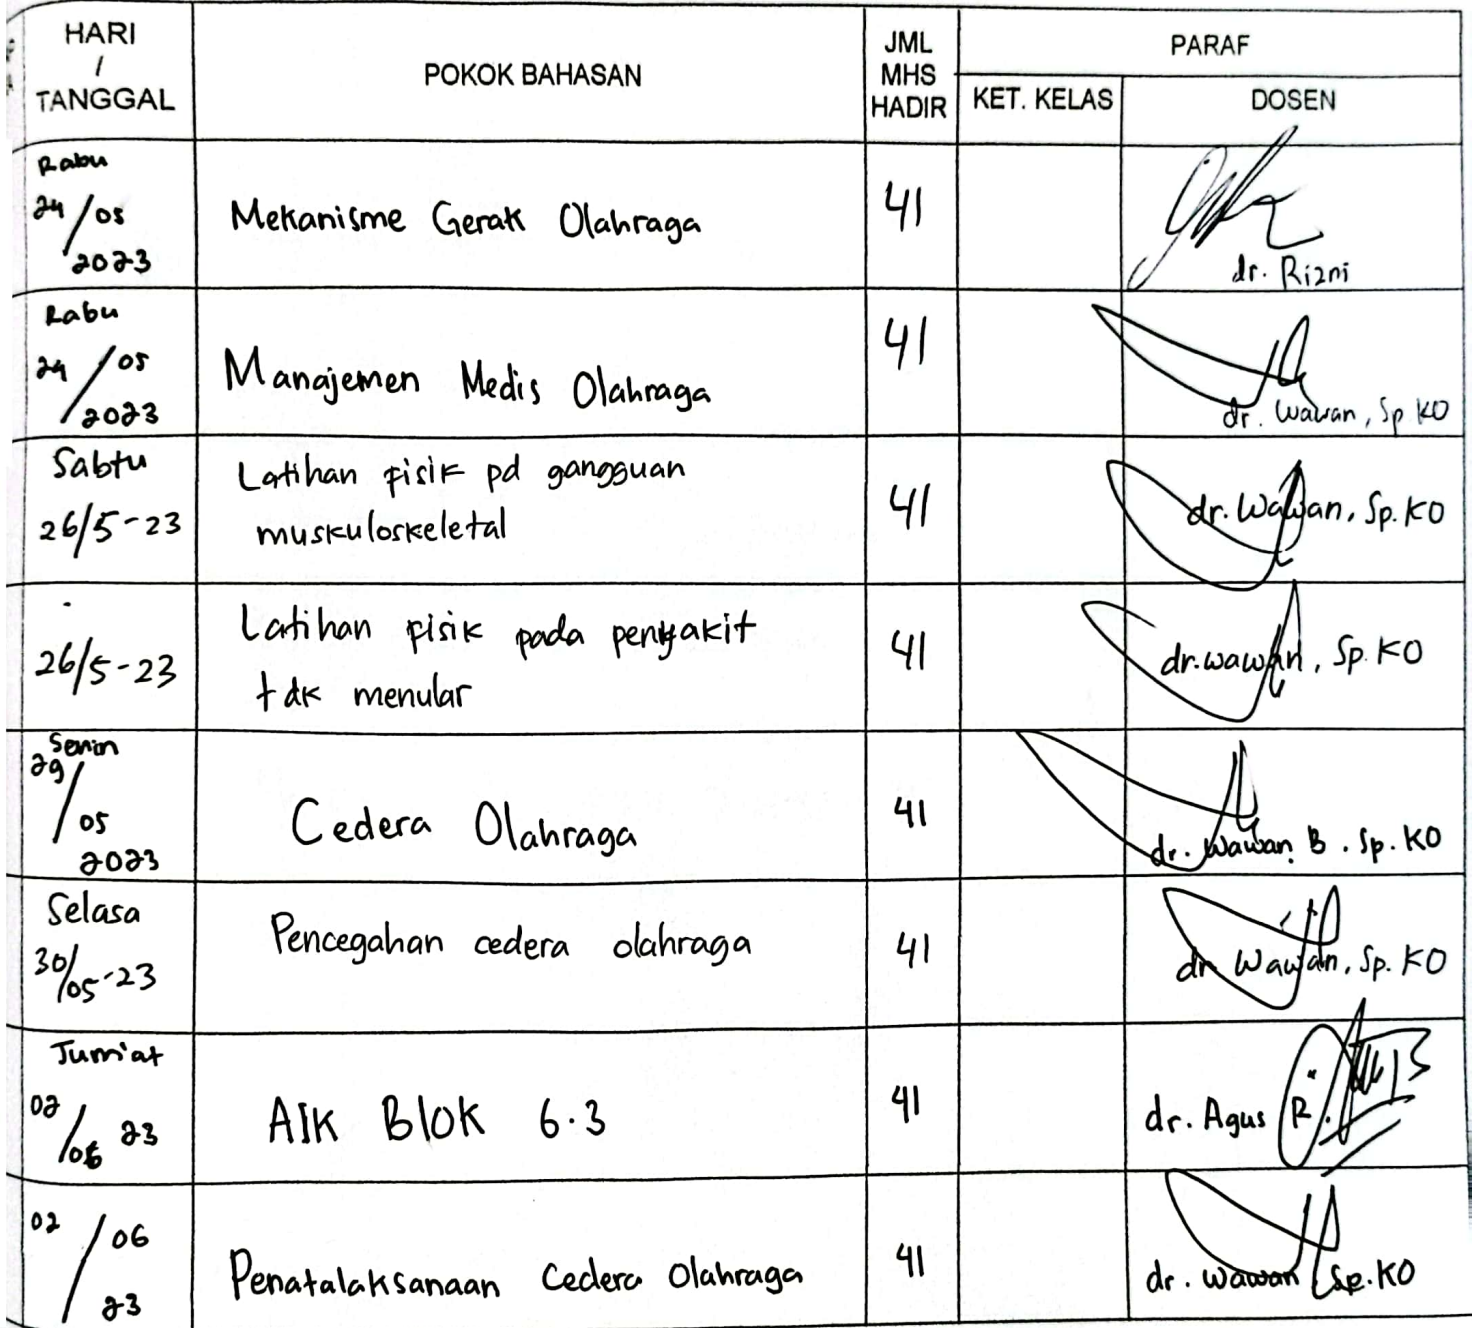 HARI
/
TANGGAL
POKOK BAHASAN
JML
MHS
HADIR
PARAF
KET. KELAS
DOSEN
Rabu
24/05
2023
Mekanisme Gerak Olahraga
41
dr. Rizni
Rabu
24/05
2023
Manajemen Medis Olahraga
41
dr. Wawan, Sp KO
Sabtu
26/5-23
Latihan fisik pd gangguan
muskuloskeletal
41
dr. Wawan, Sp. KO
26/5-23
Latihan fisik pada penyakit
tdk menular
41
dr. wawan, Sp. KO
Senin
29/05
2023
Cedera Olahraga
41
dr. Wawan B. Sp. KO
Selasa
30/05-23
Pencegahan cedera olahraga
41
dr Wawan, Sp. KO
Jum'at
02/06 23
AIK Blok 6.3
41
dr. Agus R.
02/06
23
Penatalaksanaan Cedera Olahraga
41
dr. Wawan Sp. KO